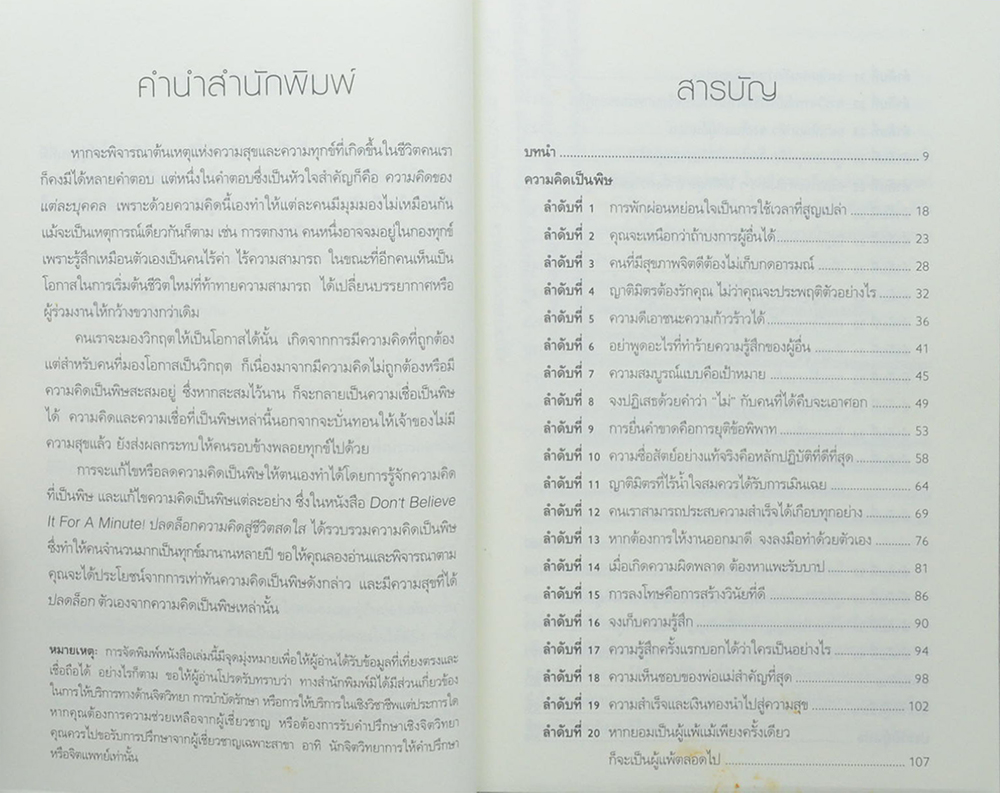 คำนำสำนักพิมพ์
หากจะพิจารณาต้นเหตุแห่งความสุขและความทุกข์ที่เกิดขึ้นในชีวิตคนเรา
ก็คงมีได้หลายคำตอบ แต่หนึ่งในคำตอบซึ่งเป็นหัวใจสำคัญก็คือ ความคิดของ
แต่ละบุคคล เพราะด้วยความคิดนี้เองทำให้แต่ละคนมีมุมมองไม่เหมือนกัน
แม้จะเป็นเหตุการณ์เดียวกันก็ตาม เช่น การตกงาน คนหนึ่งอาจจมอยู่ในกองทุกข์
เพราะรู้สึกเหมือนตัวเองเป็นคนไร้ค่า ไร้ความสามารถ ในขณะที่อีกคนเห็นเป็น
โอกาสในการเริ่มต้นชีวิตใหม่ที่ท้าทายความสามารถ ได้เปลี่ยนบรรยากาศหรือ
ผู้ร่วมงานให้กว้างขวางกว่าเดิม
คนเราจะมองวิกฤตให้เป็นโอกาสได้นั้น เกิดจากการมีความคิดที่ถูกต้อง
แต่สำหรับคนที่มองโอกาสเป็นวิกฤต ก็เนื่องมาจากมีความคิดไม่ถูกต้องหรือมี
ความคิดเป็นพิษสะสมอยู่ ซึ่งหากสะสมไว้นาน ก็จะกลายเป็นความเชื่อเป็นพิษ
ได้ ความคิดและความเชื่อที่เป็นพิษเหล่านี้นอกจากจะบั่นทอนให้เจ้าของไม่มี
ความสุขแล้ว ยังส่งผลกระทบให้คนรอบข้างพลอยทุกข์ไปด้วย
การจะแก้ไขหรือลดความคิดเป็นพิษให้ตนเองทำได้โดยการรู้จักความคิด
ที่เป็นพิษ และแก้ไขความคิดเป็นพิษแต่ละอย่าง ซึ่งในหนังสือ Don't Believe
It For A Minute! ปลดล็อกความคิดสู่ชีวิตสดใส ได้รวบรวมความคิดเป็นพิษ
ซึ่งทำให้คนจำนวนมากเป็นทุกข์มานานหลายปี ขอให้คุณลองอ่านและพิจารณาตาม
คุณจะได้ประโยชน์จากการเท่าทันความคิดเป็นพิษดังกล่าว และมีความสุขที่ได้
ปลดล็อก ตัวเองจากความคิดเป็นพิษเหล่านั้น
หมายเหตุ: การจัดพิมพ์หนังสือเล่มนี้มีจุดมุ่งหมายเพื่อให้ผู้อ่านได้รับข้อมูลที่เที่ยงตรงและ
เชื่อถือได้ อย่างไรก็ตาม ขอให้ผู้อ่านโปรดรับทราบว่า ทางสำนักพิมพ์มิได้มีส่วนเกี่ยวข้อง
ในการให้บริการทางด้านจิตวิทยา การบำบัดรักษา หรือการให้บริการในเชิงวิชาชีพแต่ประการใด
หากคุณต้องการความช่วยเหลือจากผู้เชี่ยวชาญ หรือต้องการรับคำปรึกษาเชิงจิตวิทยา
คุณควรไปขอรับการปรึกษาจากผู้เชี่ยวชาญเฉพาะสาขา อาทิ นักจิตวิทยาการให้คำปรึกษา
หรือจิตแพทย์เท่านั้น
สารบัญ
บทนำ ........ 9
ความคิดเป็นพิษ
ลำดับที่ 1 การพักผ่อนหย่อนใจเป็นการใช้เวลาที่สูญเปล่า ........ 18
ลำดับที่ 2 คุณจะเหนือกว่าถ้าบงการผู้อื่นได้ ........ 23
ลำดับที่ 3 คนที่มีสุขภาพจิตดีต้องไม่เก็บกดอารมณ์ ........ 28
ลำดับที่ 4 ญาติมิตรต้องรักคุณ ไม่ว่าคุณจะประพฤติตัวอย่างไร ........ 32
ลำดับที่ 5 ความดีเอาชนะความก้าวร้าวได้ ........ 36
ลำดับที่ 6 อย่าพูดอะไรที่ทำร้ายความรู้สึกของผู้อื่น ........ 41
ลำดับที่ 7 ความสมบูรณ์แบบคือเป้าหมาย ........ 45
ลำดับที่ 8 จงปฏิเสธด้วยคำว่า "ไม่" กับคนที่ได้คืบจะเอาศอก ........ 49
ลำดับที่ 9 การยื่นคำขาดคือการยุติข้อพิพาท ........ 53
ลำดับที่ 10 ความซื่อสัตย์อย่างแท้จริงคือหลักปฏิบัติที่ดีที่สุด ........ 58
ลำดับที่ 11 ญาติมิตรที่ไร้น้ำใจสมควรได้รับการเมินเฉย ........ 64
ลำดับที่ 12 คนเราสามารถประสบความสำเร็จได้เกือบทุกอย่าง ........ 69
ลำดับที่ 13 หากต้องการให้งานออกมาดี จงลงมือทำด้วยตัวเอง ........ 76
ลำดับที่ 14 เมื่อเกิดความผิดพลาด ต้องหาแพะรับบาป ........ 81
ลำดับที่ 15 การลงโทษคือการสร้างวินัยที่ดี ........ 86
ลำดับที่ 16 จงเก็บความรู้สึก ........ 90
ลำดับที่ 17 ความรู้สึกครั้งแรกบอกได้ว่าใครเป็นอย่างไร ........ 94
ลำดับที่ 18 ความเห็นชอบของพ่อแม่สำคัญที่สุด ........ 98
ลำดับที่ 19 ความสำเร็จและเงินทองนำไปสู่ความสุข ........ 102
ลำดับที่ 20 หากยอมเป็นผู้แพ้แม้เพียงครั้งเดียว
ก็จะเป็นผู้แพ้ตลอดไป ........ 107